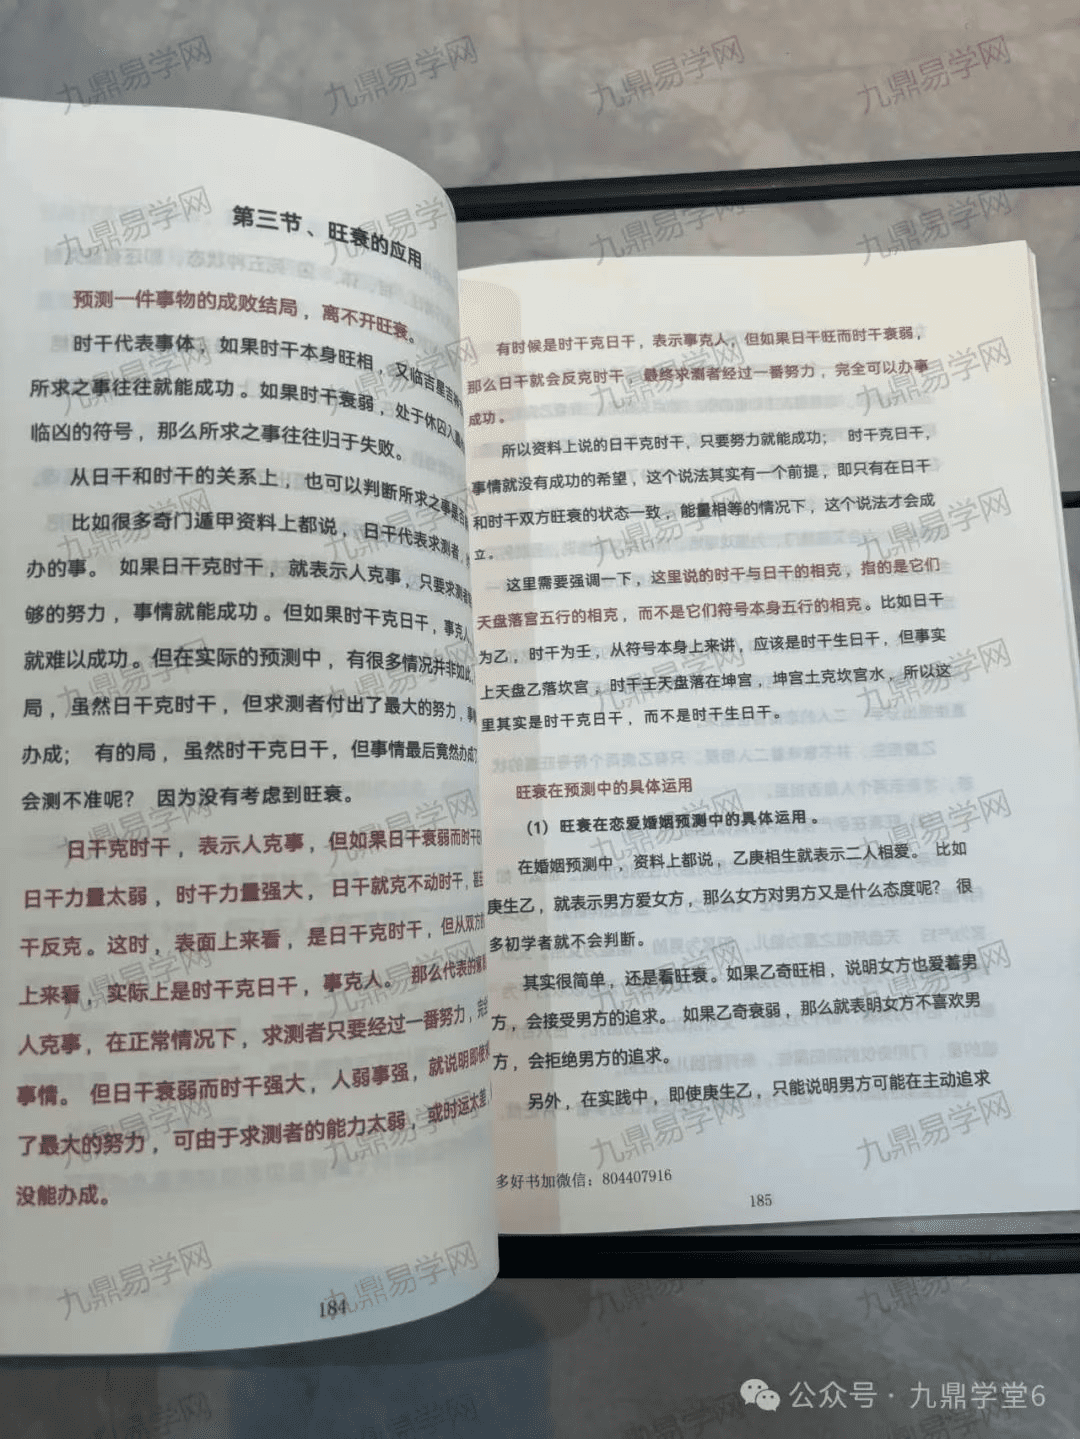 第三节、旺衰的应用
预测一件事物的成败结局，离不开旺衰。
时干代表事体，如果时干本身旺相，又临吉星吉
所求之事往往就能成功。如果时干衰弱，处于休囚
临凶的符号，那么所求之事往往归于失败。
从日干和时干的关系上，也可以判断所求之事是否
比如很多奇门遁甲资料上都说，日干代表求测者，
办的事。 如果日干克时干，就表示人克事，只要求测者
够的努力，事情就能成功。但如果时干克日干，事克人
就难以成功。但在实际的预测中，有很多情况并非如此
局，虽然日干克时干，但求测者付出了最大的努力，事
办成； 有的局，虽然时干克日干，但事情最后竟然办成
会测不准呢？ 因为没有考虑到旺衰。
日干克时干，表示人克事，但如果日干衰弱而时干
日干力量太弱，时干力量强大，日干就克不动时干，甚至
干反克。这时，表面上来看，是日干克时干，但从双方
上来看，实际上是时干克日干，事克人。 那么代表的
人克事，在正常情况下，求测者只要经过一番努力，完全
事情。 但日干衰弱而时干强大，人弱事强，就说明即使
了最大的努力，可由于求测者的能力太弱，或时运太差
没能办成。
184
有时候是时干克日干，表示事克人，但如果日干旺而时干衰弱，
那么日干就会反克时干，最终求测者经过一番努力，完全可以办事
成功。
所以资料上说的日干克时干，只要努力就能成功； 时干克日干，
事情就没有成功的希望，这个说法其实有一个前提，即只有在日干
和时干双方旺衰的状态一致，能量相等的情况下，这个说法才会成
立。
这里需要强调一下，这里说的时干与日干的相克，指的是它们
天盘落宫五行的相克，而不是它们符号本身五行的相克。比如日干
为乙，时干为壬，从符号本身上来讲，应该是时干生日干，但事实
上天盘乙落坎宫，时干壬天盘落在坤宫，坤宫土克坎宫水，所以这
里其实是时干克日干，而不是时干生日干。
旺衰在预测中的具体运用
（1）旺衰在恋爱婚姻预测中的具体运用。
在婚姻预测中，资料上都说，乙庚相生就表示二人相爱。 比如
庚生乙，就表示男方爱女方，那么女方对男方又是什么态度呢？ 很
多初学者就不会判断。
其实很简单，还是看旺衰。如果乙奇旺相，说明女方也爱着男
方，会接受男方的追求。 如果乙奇衰弱，那么就表明女方不喜欢男
方，会拒绝男方的追求。
另外，在实践中，即使庚生乙，只能说明男方可能在主动追求
多好书加微信：804407916
185
九鼎易学网
公众号·九鼎学堂6